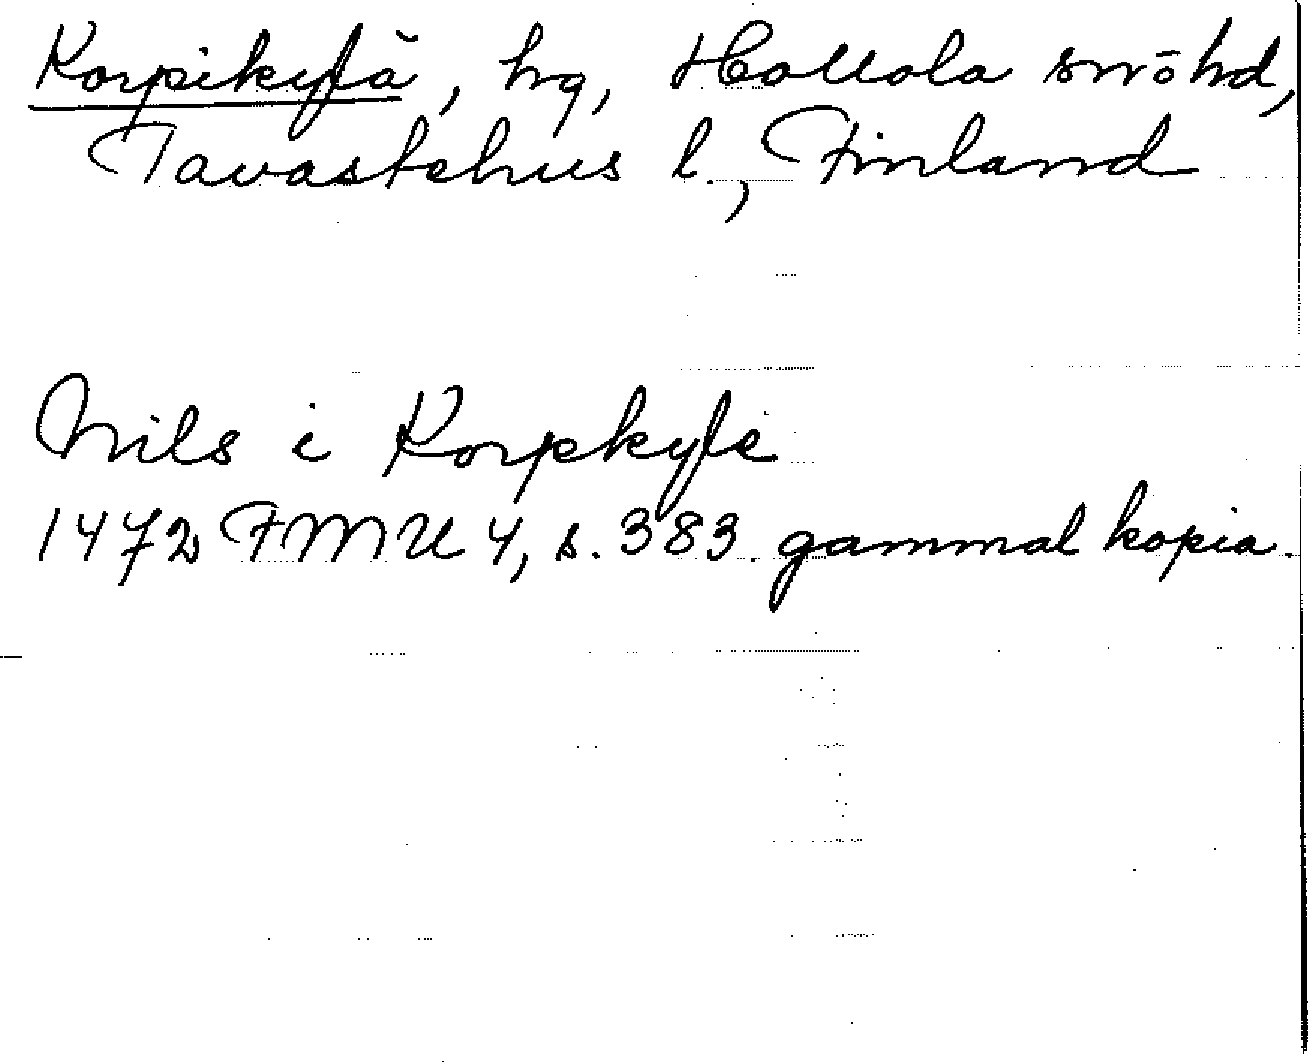 Korpikylä, hg, Hollola snöhd,
Tavastehus l., Finland
Nils i Korpkyle
1472 FMU 4, s. 383 gammal kopia.